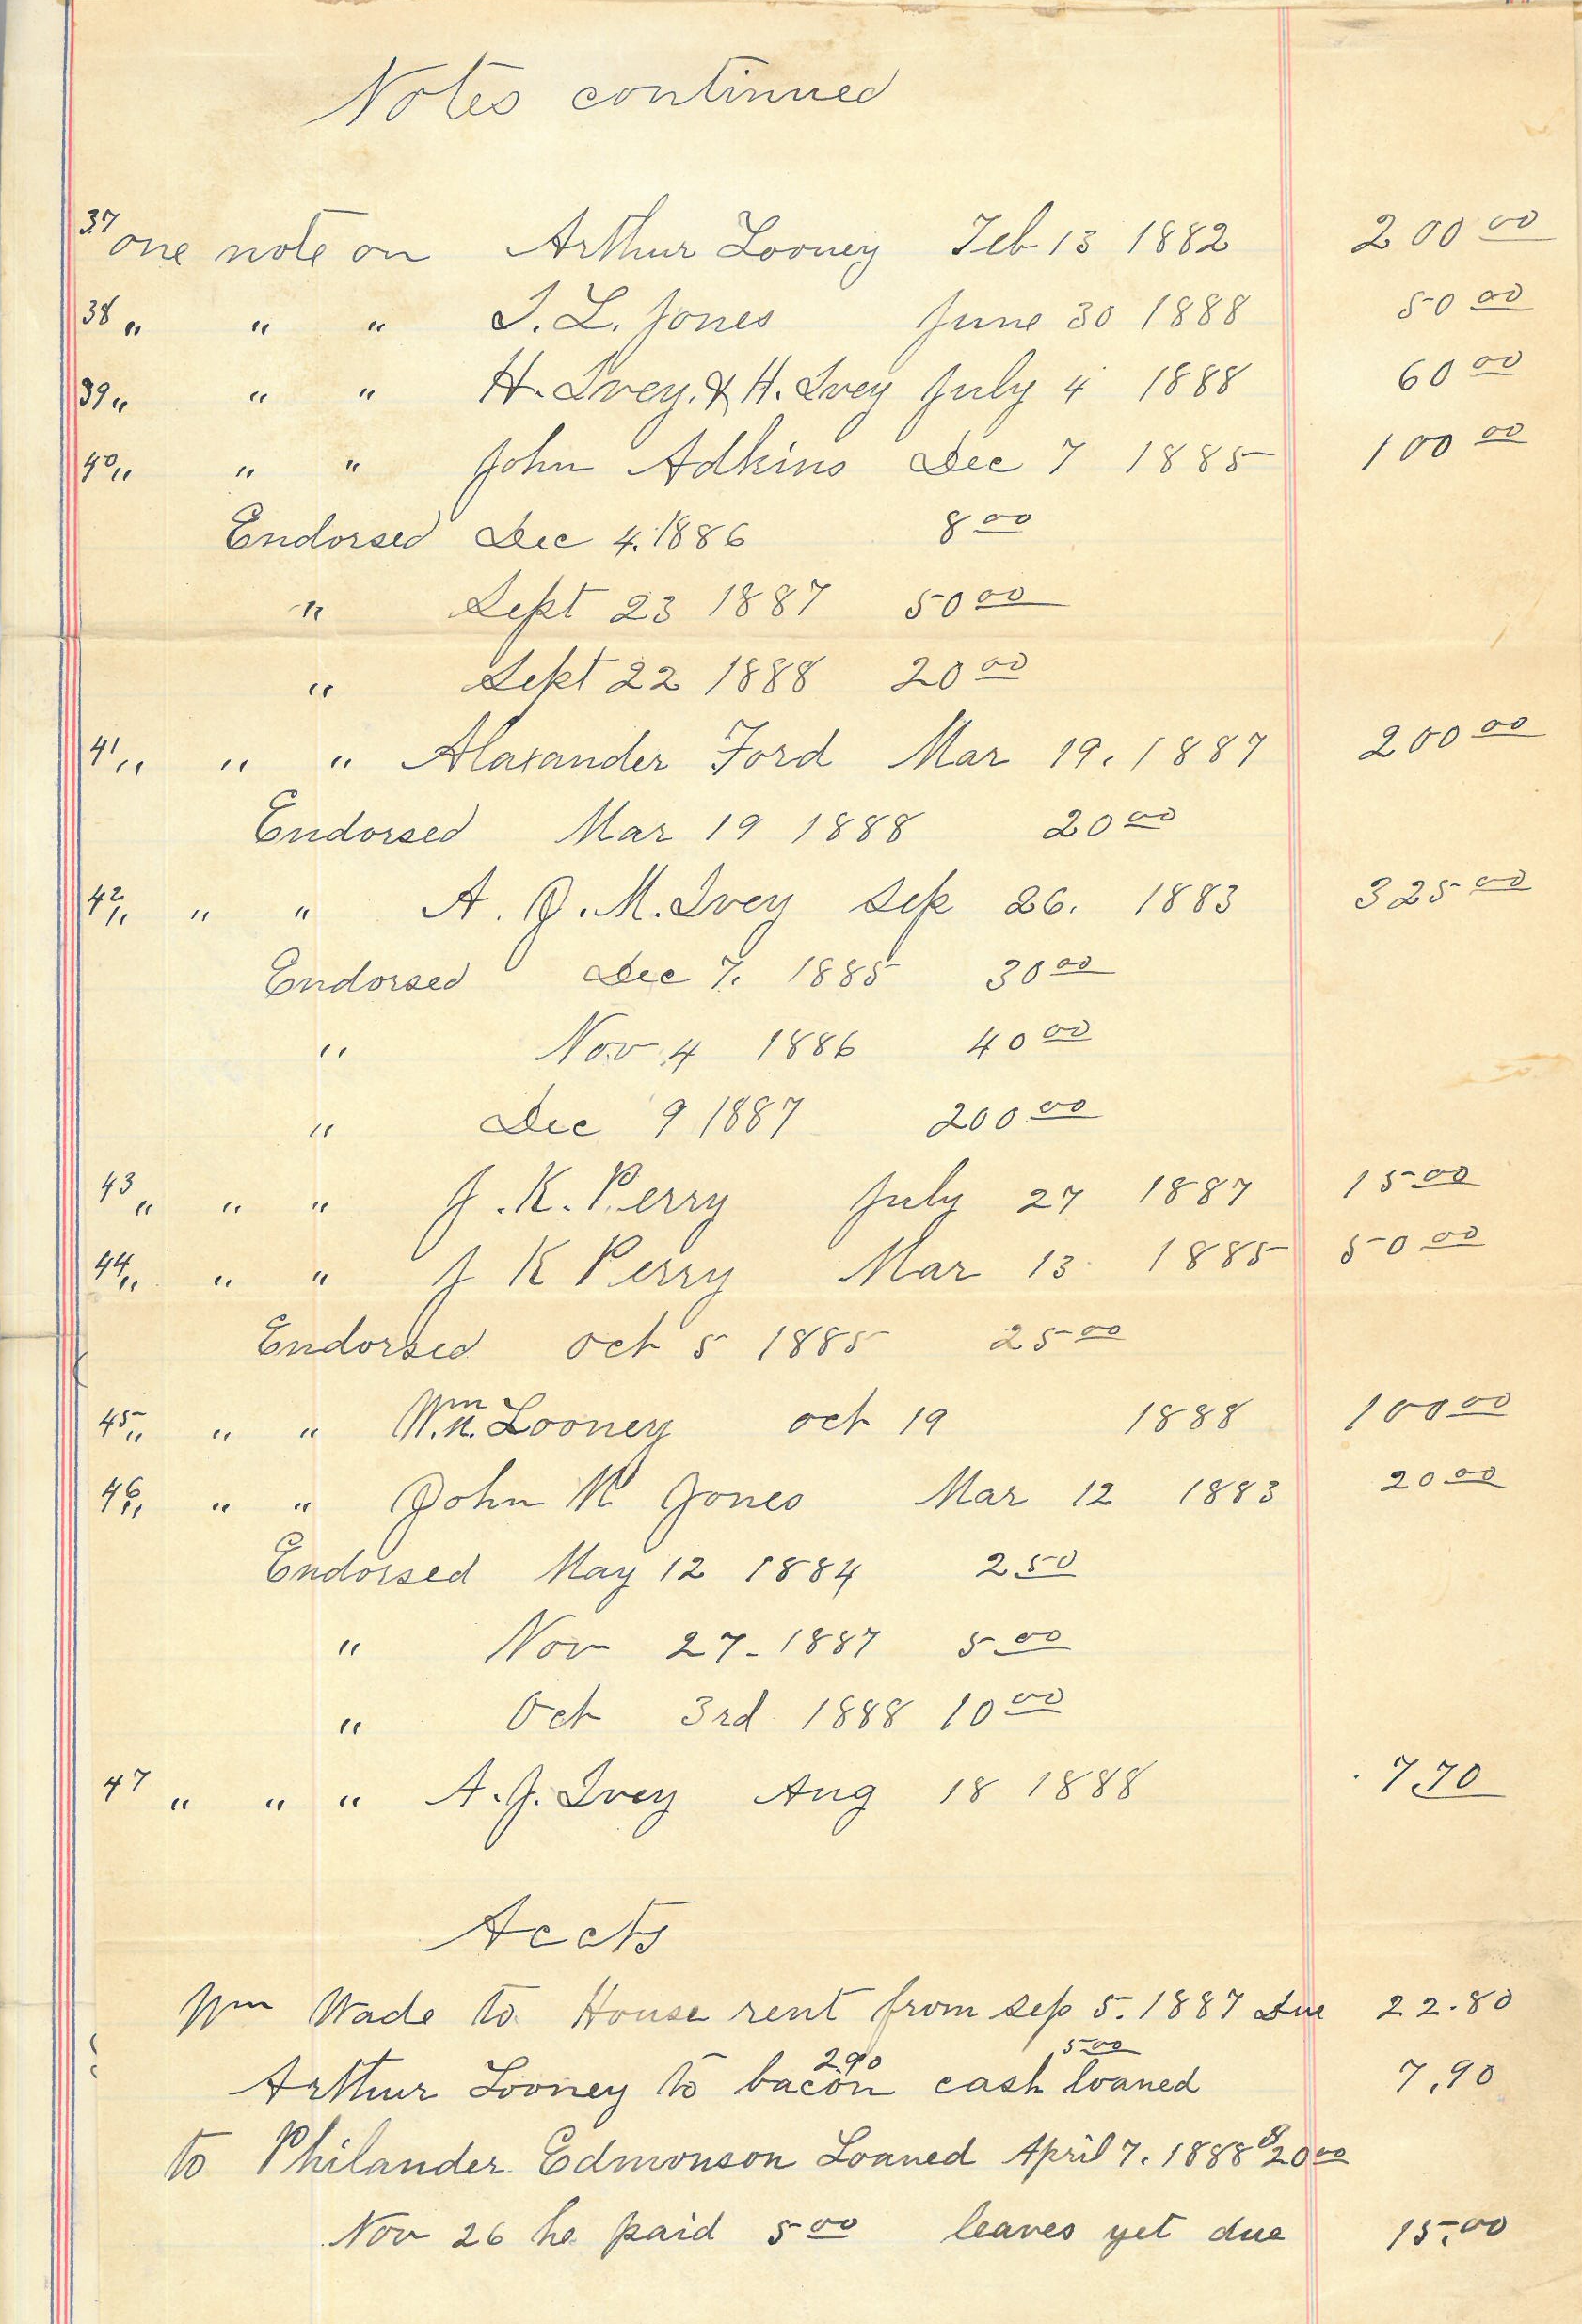 Notes continued
37 one note on Arthur Looney Feb 13 1882 200 00
38 " " " T. L. Jones June 30 1888 50 00
39 " " " H. Ivey. & H. Ivey July 4 1888 60 00
40 " " " John Adkins Dec 7 1885 100 00
Endorsed Dec 4. 1886 8 00
" Sept 23 1887 50 00
" Sept 22 1888 20 00
41 " " " Alaxander Ford Mar 19. 1887 200 00
Endorsed Mar 19 1888 20 00
42 " " " A. J. M. Ivey Sep 26. 1883 325 00
Endorsed Dec 7. 1885 30 00
" Nov 4 1886 40 00
" Dec 9 1887 200 00
43 " " " J. K. Perry July 27 1887 15 00
44 " " " J K Perry Mar 13 1885 50 00
Endorsed Oct 5 1885 25 00
45 " " " Wm. Looney Oct 19 1888 100 00
46 " " " John M Jones Mar 12 1883 20 00
Endorsed May 12 1884 2 50
" Nov 27 - 1887 5 00
" Oct 3rd 1888 10 00
47 " " " A. J. Ivey Aug 18 1888 7.70
Accts
Wm Wade to House rent from Sep 5. 1887 Due 22.80
Arthur Looney to bacon 2 90 cash loaned 5 00 7.90
to Philander Edmonson Loaned April 7. 1888 $20 00
Nov 26 he paid 5 00 leaves yet due 15.00